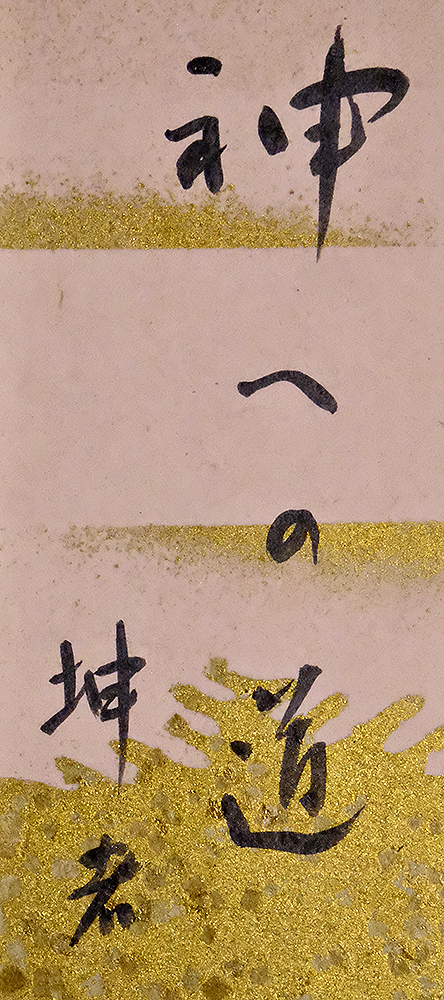 神への道
坤者